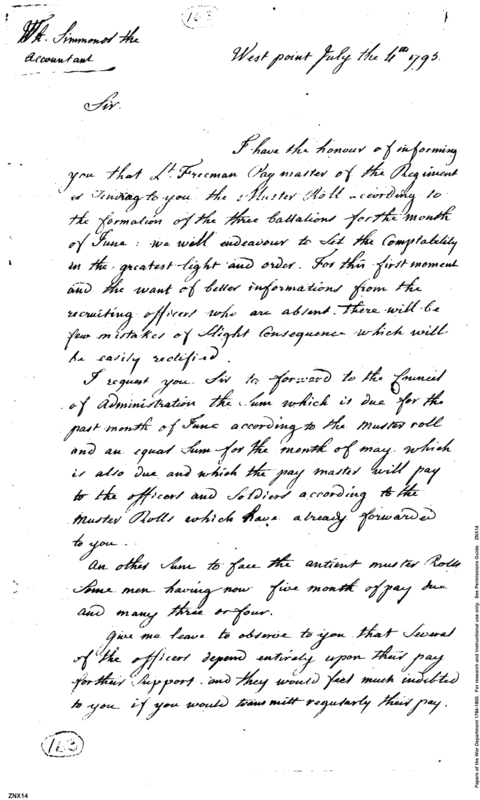 163
Wm. Simmonds the
Accountant
West point July the 4th 1795.
Sir.
I have the honour of informing
you that Lt. Freeman Paymaster of the Regiment
is sending to you the Muster Roll according to
the formation of the three batallions for the month
of June: we will endeavour to set the Comptability
in the greatest light and order. For this first moment
and the want of better informations from the
recruiting officers who are absent. there will be
few mistakes of Slight Consequence which will
be easily rectified.
I request you Sir to forward to the Council
of Administration the Sum which is due for the
past month of June according to the muster roll
and an equal Sum for the month of may. which
is also due and which the pay master will pay
to the officers and Soldiers according to the
muster Rolls which have already forwarded
to you.
An other Sum to face the antient muster Rolls
Some men having now five month of pay due
and many three or four.
Give me leave to observe to you that Several
of the officers depend entirely upon their pay
for their Support. and they would feel much indebted
to you if you would transmitt regularly their pay.
163
ZNX14
Papers of the War Department 1784-1800. For research and instructional use only. See Permissions Guide. ZNX14